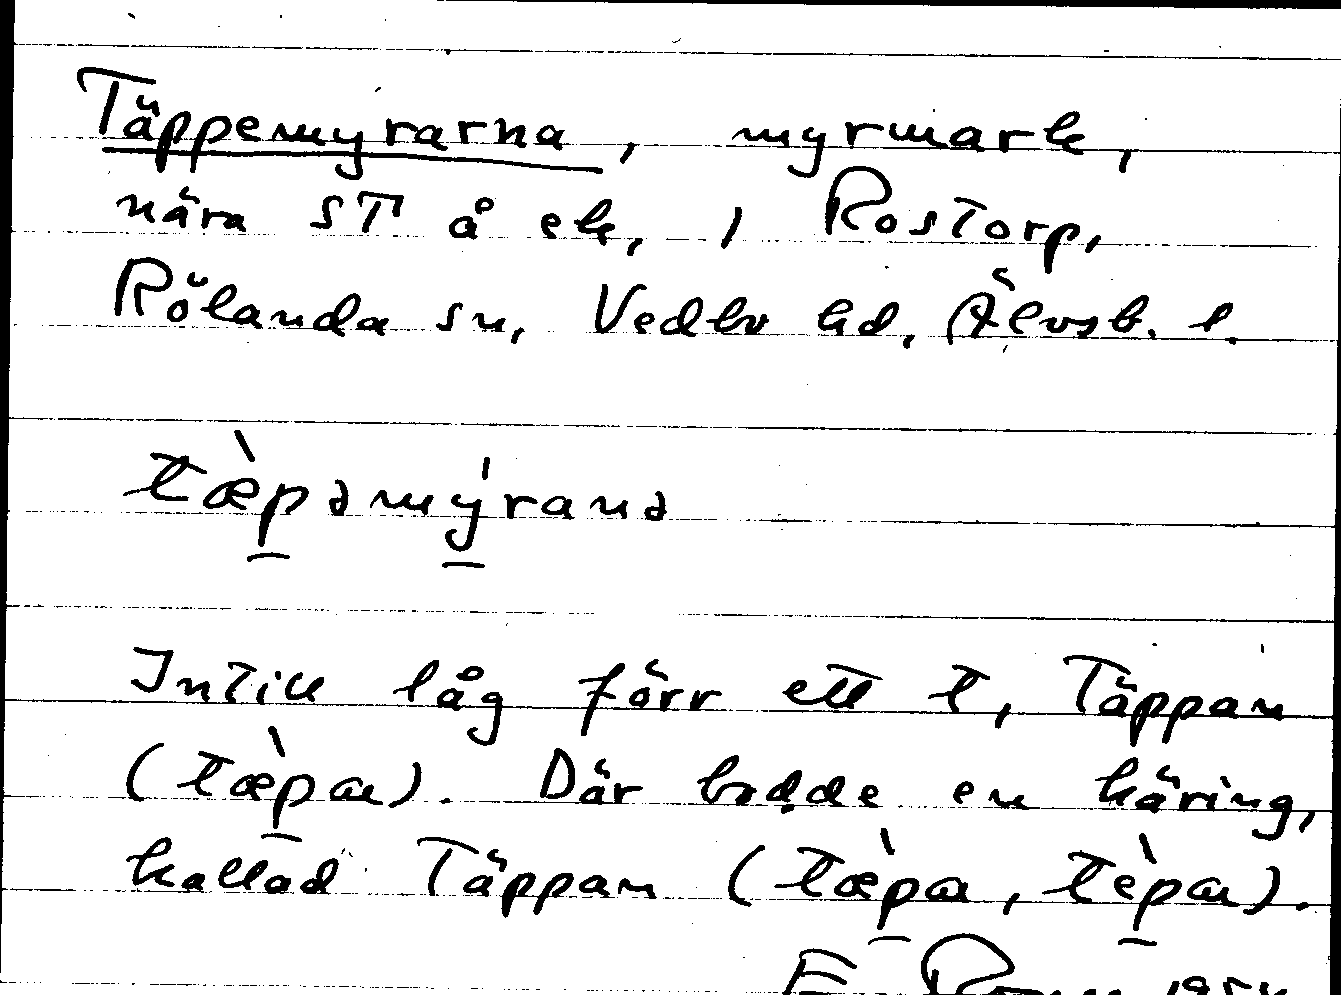 Täppemyrarna, myrmark,
nära ST å ek, i Rostorp,
Rölanda sn, Vedbo hd, Älvsb. l.
tæ̀pəmýrana
Intill låg förr ett t, Täppan
(tæ̀pan). Där bodde en käring,
kallad Täppan (tæ̀pa, tèpan).